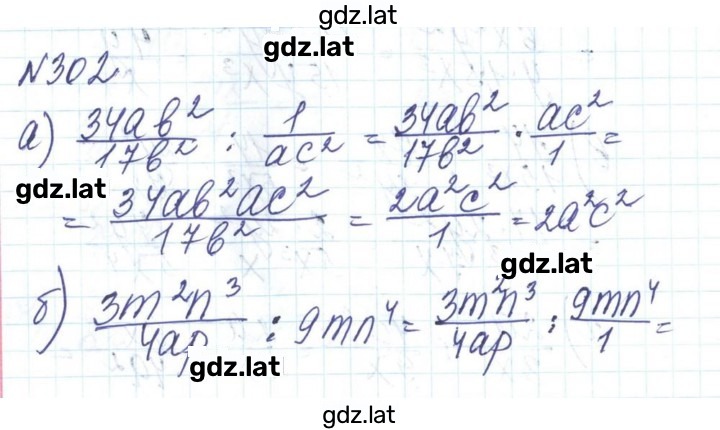 gdz.lat
gdz.lat
№302
а) 34ab²/17b² : 1/ac² = 34ab²/17b² · ac²/1 =
gdz.lat
= 34ab²ac²/17b² = 2a²c²/1 = 2a²c²
gdz.lat
б) 3m²n³/4ap : 9mn⁴ = 3m²n³/4ap : 9mn⁴/1 =
gdz.lat
gdz.lat